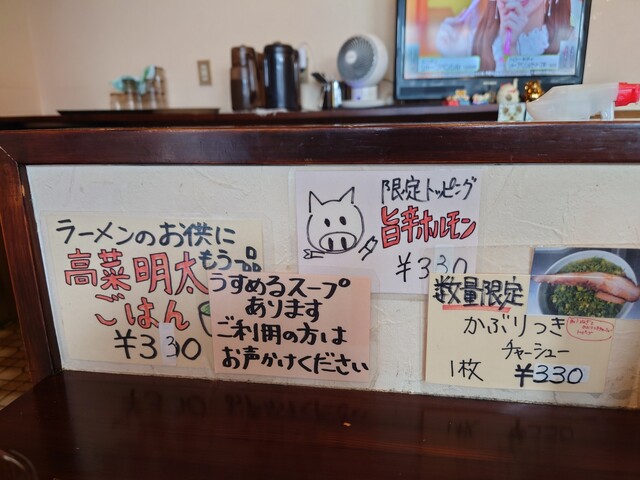 ラーメンのお供に
もう一品
高菜明太
ごはん
¥330
うすめるスープ
あります
ご利用の方は
お声かけください
限定トッピング
旨辛ホルモン
¥330
数量限定
かぶりつき
チャーシュー
1枚 ¥330